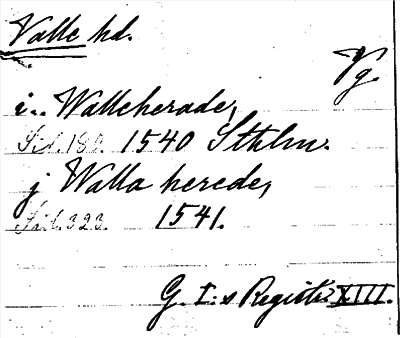 Valle hd.
Vg.
i.. Walleherade,
Sid. 180. 1540 Sthlm.
j Walla herede,
Sid. 323. 1541.
G. I:s Registr. XIII.